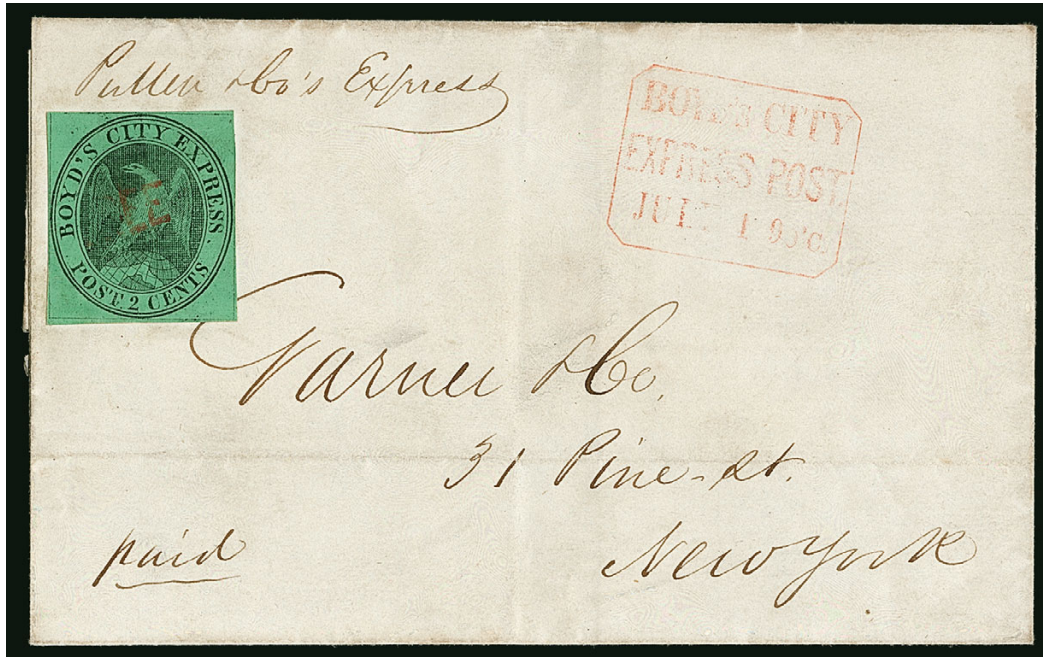 Pullen & Co's Express
BOYD'S CITY EXPRESS.
POST. 2 CENTS
BOYD'S CITY
EXPRESS POST.
JUL 1 9
Varner & Co.
31 Pine-st.
New York
paid